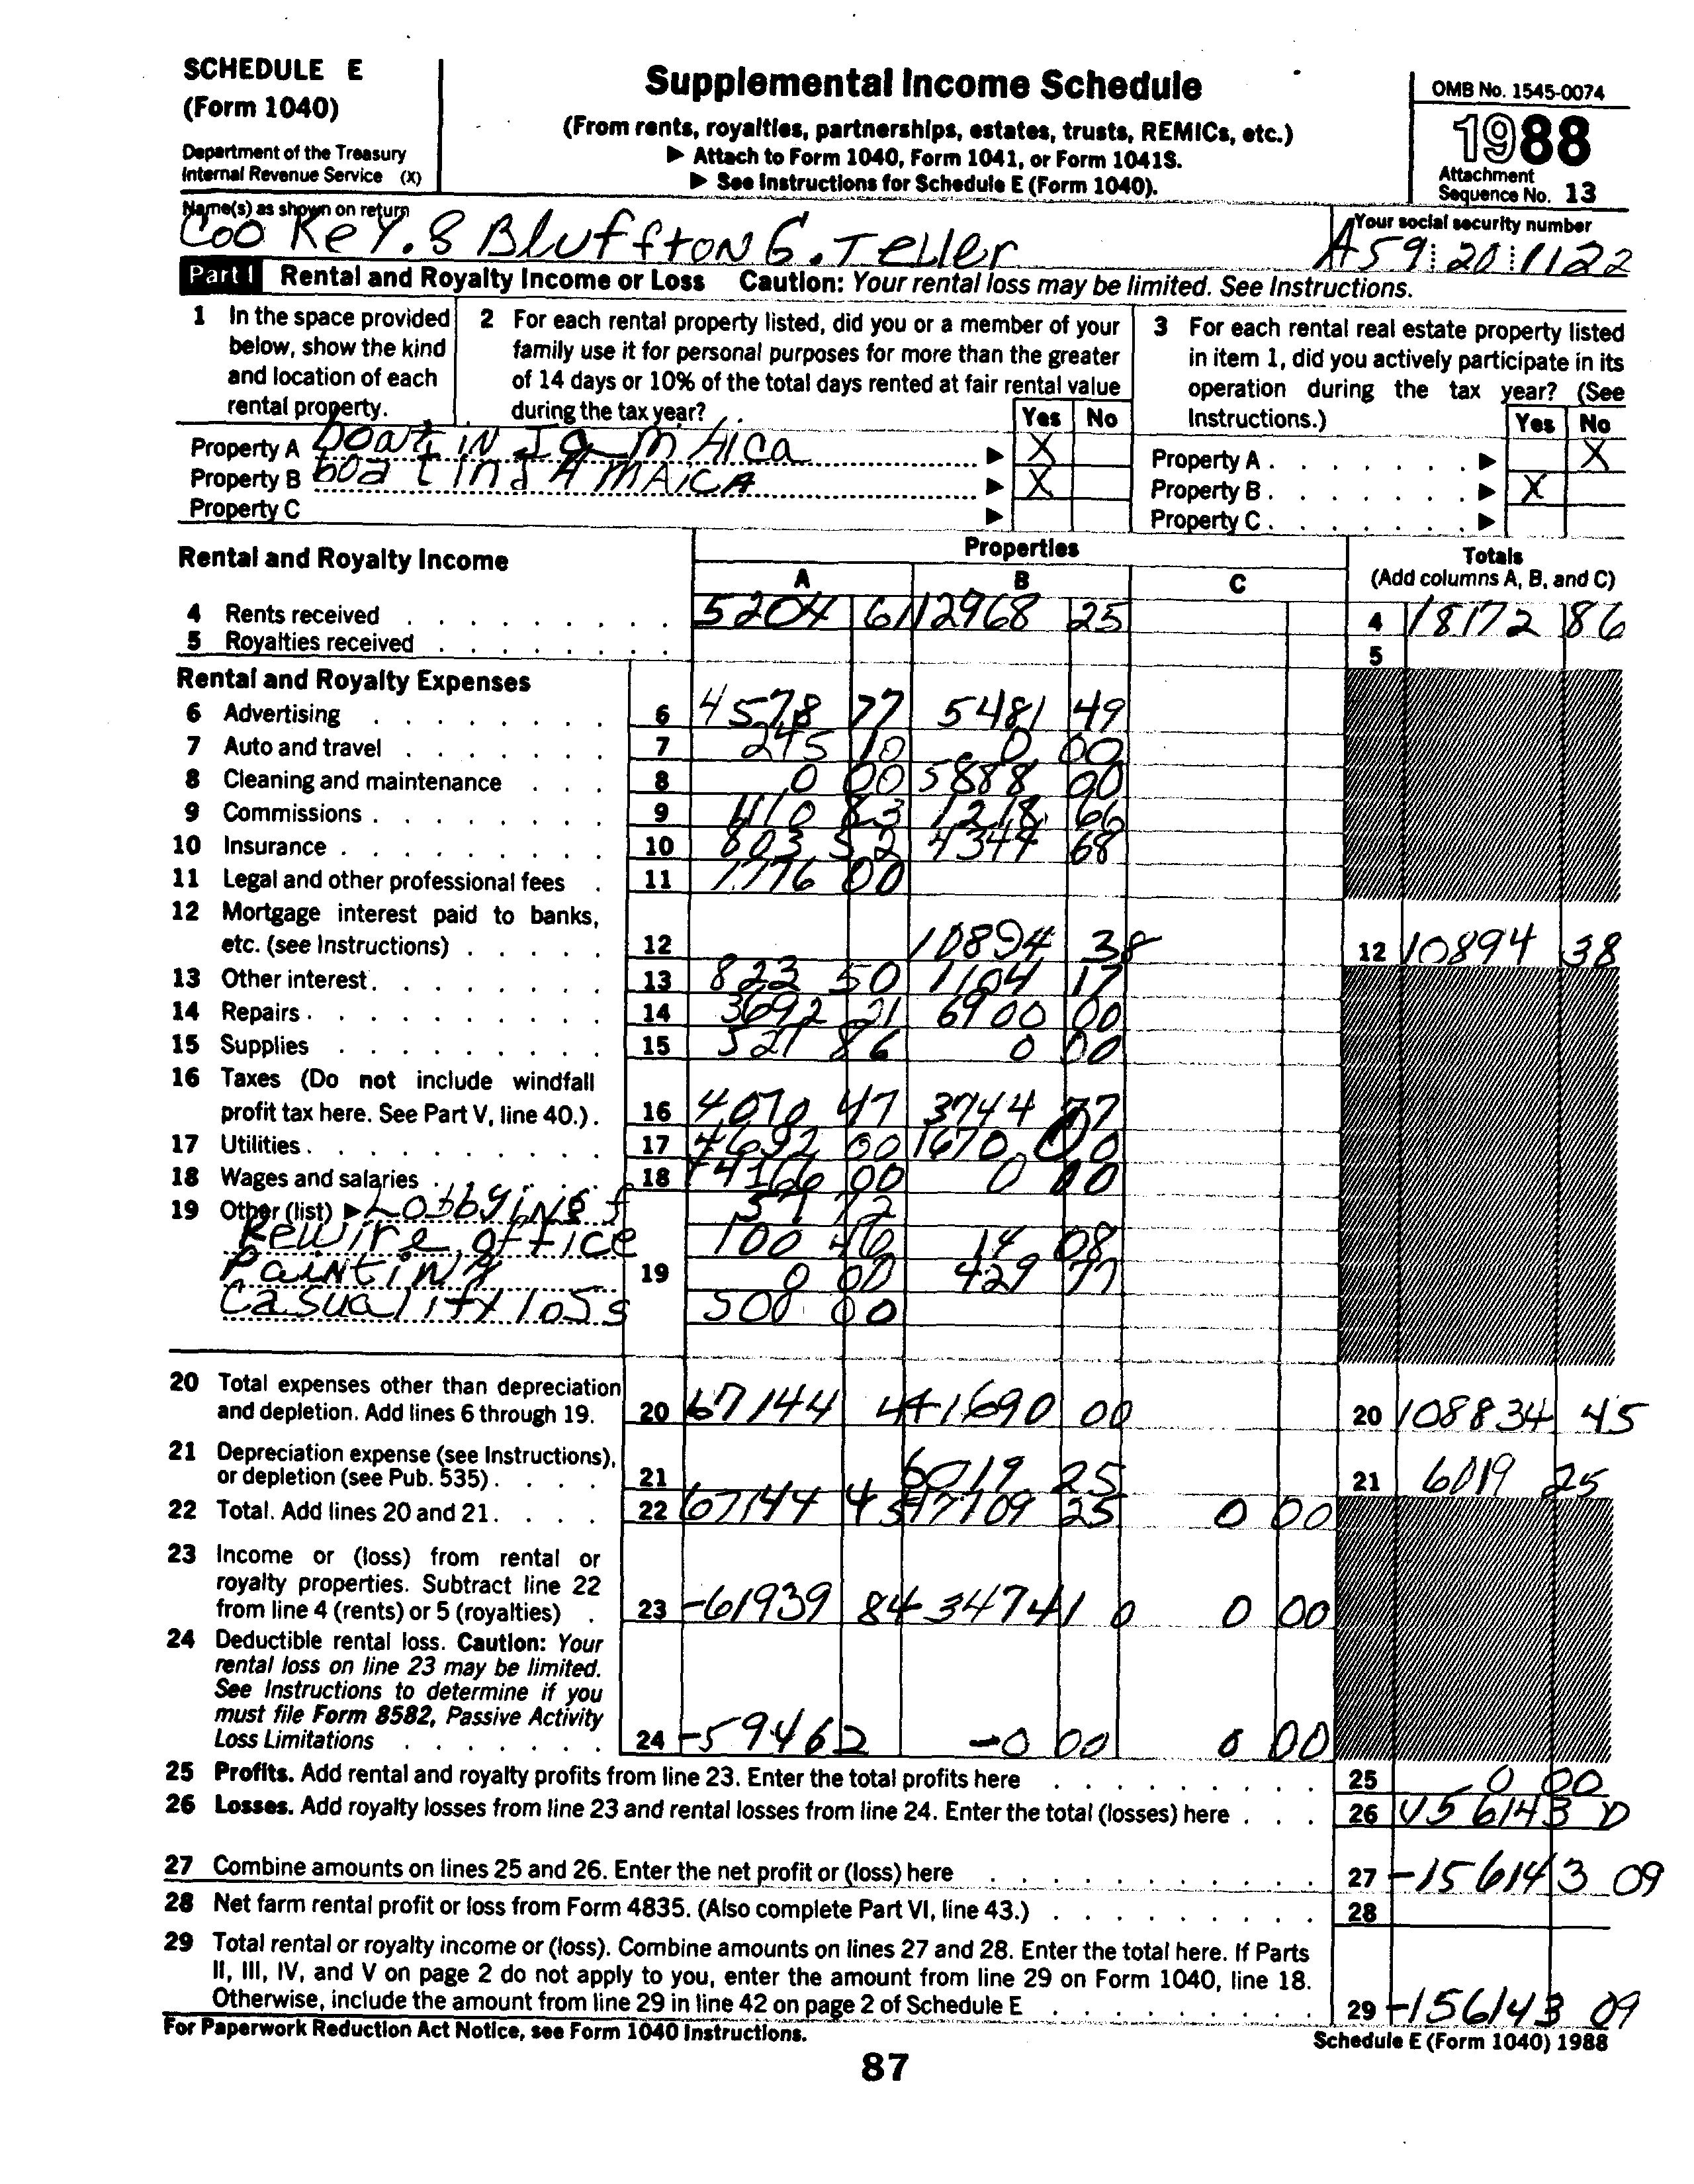 SCHEDULE E
(Form 1040)
Department of the Treasury
Internal Revenue Service (X)
Supplemental Income Schedule
(From rents, royalties, partnerships, estates, trusts, REMICs, etc.)
▶ Attach to Form 1040, Form 1041, or Form 1041S.
▶ See Instructions for Schedule E (Form 1040).
OMB No. 1545-0074
1988
Attachment
Sequence No. 13
Name(s) as shown on return
Coo Key. & Bluffton G. Teller
Your social security number
A59 20 1122
Part I Rental and Royalty Income or Loss Caution: Your rental loss may be limited. See Instructions.
1 In the space provided
below, show the kind
and location of each
rental property.
2 For each rental property listed, did you or a member of your
family use it for personal purposes for more than the greater
of 14 days or 10% of the total days rented at fair rental value
during the tax year?
Yes No
3 For each rental real estate property listed
in item 1, did you actively participate in its
operation during the tax year? (See
Instructions.)
Yes No
Property A boat in Jamaica ▶ X
Property B boat in JAMAICA ▶ X
Property C ▶
Property A ▶ X
Property B ▶ X
Property C ▶
Rental and Royalty Income
Properties
A B C
Totals
(Add columns A, B, and C)
4 Rents received 5204 61 12968 25 4 18172 86
5 Royalties received 5
Rental and Royalty Expenses
6 Advertising 6 4578 77 5481 49
7 Auto and travel 7 245 10 0 00
8 Cleaning and maintenance 8 0 00 5888 00
9 Commissions 9 83 1218 66
10 Insurance 10 803 52 4344 68
11 Legal and other professional fees 11 1776 00
12 Mortgage interest paid to banks,
etc. (see Instructions) 12 10894 38 12 10894 38
13 Other interest 13 823 50 1104 17
14 Repairs 14 3692 21 6900 00
15 Supplies 15 527 86 0 00
16 Taxes (Do not include windfall
profit tax here. See Part V, line 40.) 16 4070 47 3744 77
17 Utilities 17 4692 00 1670 00
18 Wages and salaries 18 00 0 00
19 Other (list) ▶ Lobbying f 72
Rewire office 100 46 14 08
Painting 19 0 00 429 77
Casuality loss 500 00
20 Total expenses other than depreciation
and depletion. Add lines 6 through 19. 20 67144 4 41690 00 20 108834 45
21 Depreciation expense (see Instructions),
or depletion (see Pub. 535) 21 6019 25 21 6019 25
22 Total. Add lines 20 and 21 22 67144 45 47709 25 0 00
23 Income or (loss) from rental or
royalty properties. Subtract line 22
from line 4 (rents) or 5 (royalties) 23 -61939 84 -34741 0 0 00
24 Deductible rental loss. Caution: Your
rental loss on line 23 may be limited.
See Instructions to determine if you
must file Form 8582, Passive Activity
Loss Limitations 24 -59462 -0 00 0 00
25 Profits. Add rental and royalty profits from line 23. Enter the total profits here 25 0 00
26 Losses. Add royalty losses from line 23 and rental losses from line 24. Enter the total (losses) here 26
27 Combine amounts on lines 25 and 26. Enter the net profit or (loss) here 27 -156143 09
28 Net farm rental profit or loss from Form 4835. (Also complete Part VI, line 43.) 28
29 Total rental or royalty income or (loss). Combine amounts on lines 27 and 28. Enter the total here. If Parts
II, III, IV, and V on page 2 do not apply to you, enter the amount from line 29 on Form 1040, line 18.
Otherwise, include the amount from line 29 in line 42 on page 2 of Schedule E 29 -156143 09
For Paperwork Reduction Act Notice, see Form 1040 Instructions.
Schedule E (Form 1040) 1988
87